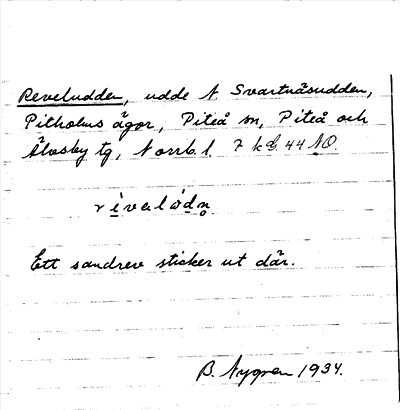 Reveludden, udde N. Svartnäsudden,
Pitholms ägor, Piteå sn, Piteå och
Älvsby tg, Norrb. l. 7 kbl. 44 NO.
rivəlúdn̥
Ett sandrev sticker ut där.
B. Nygren 1934.